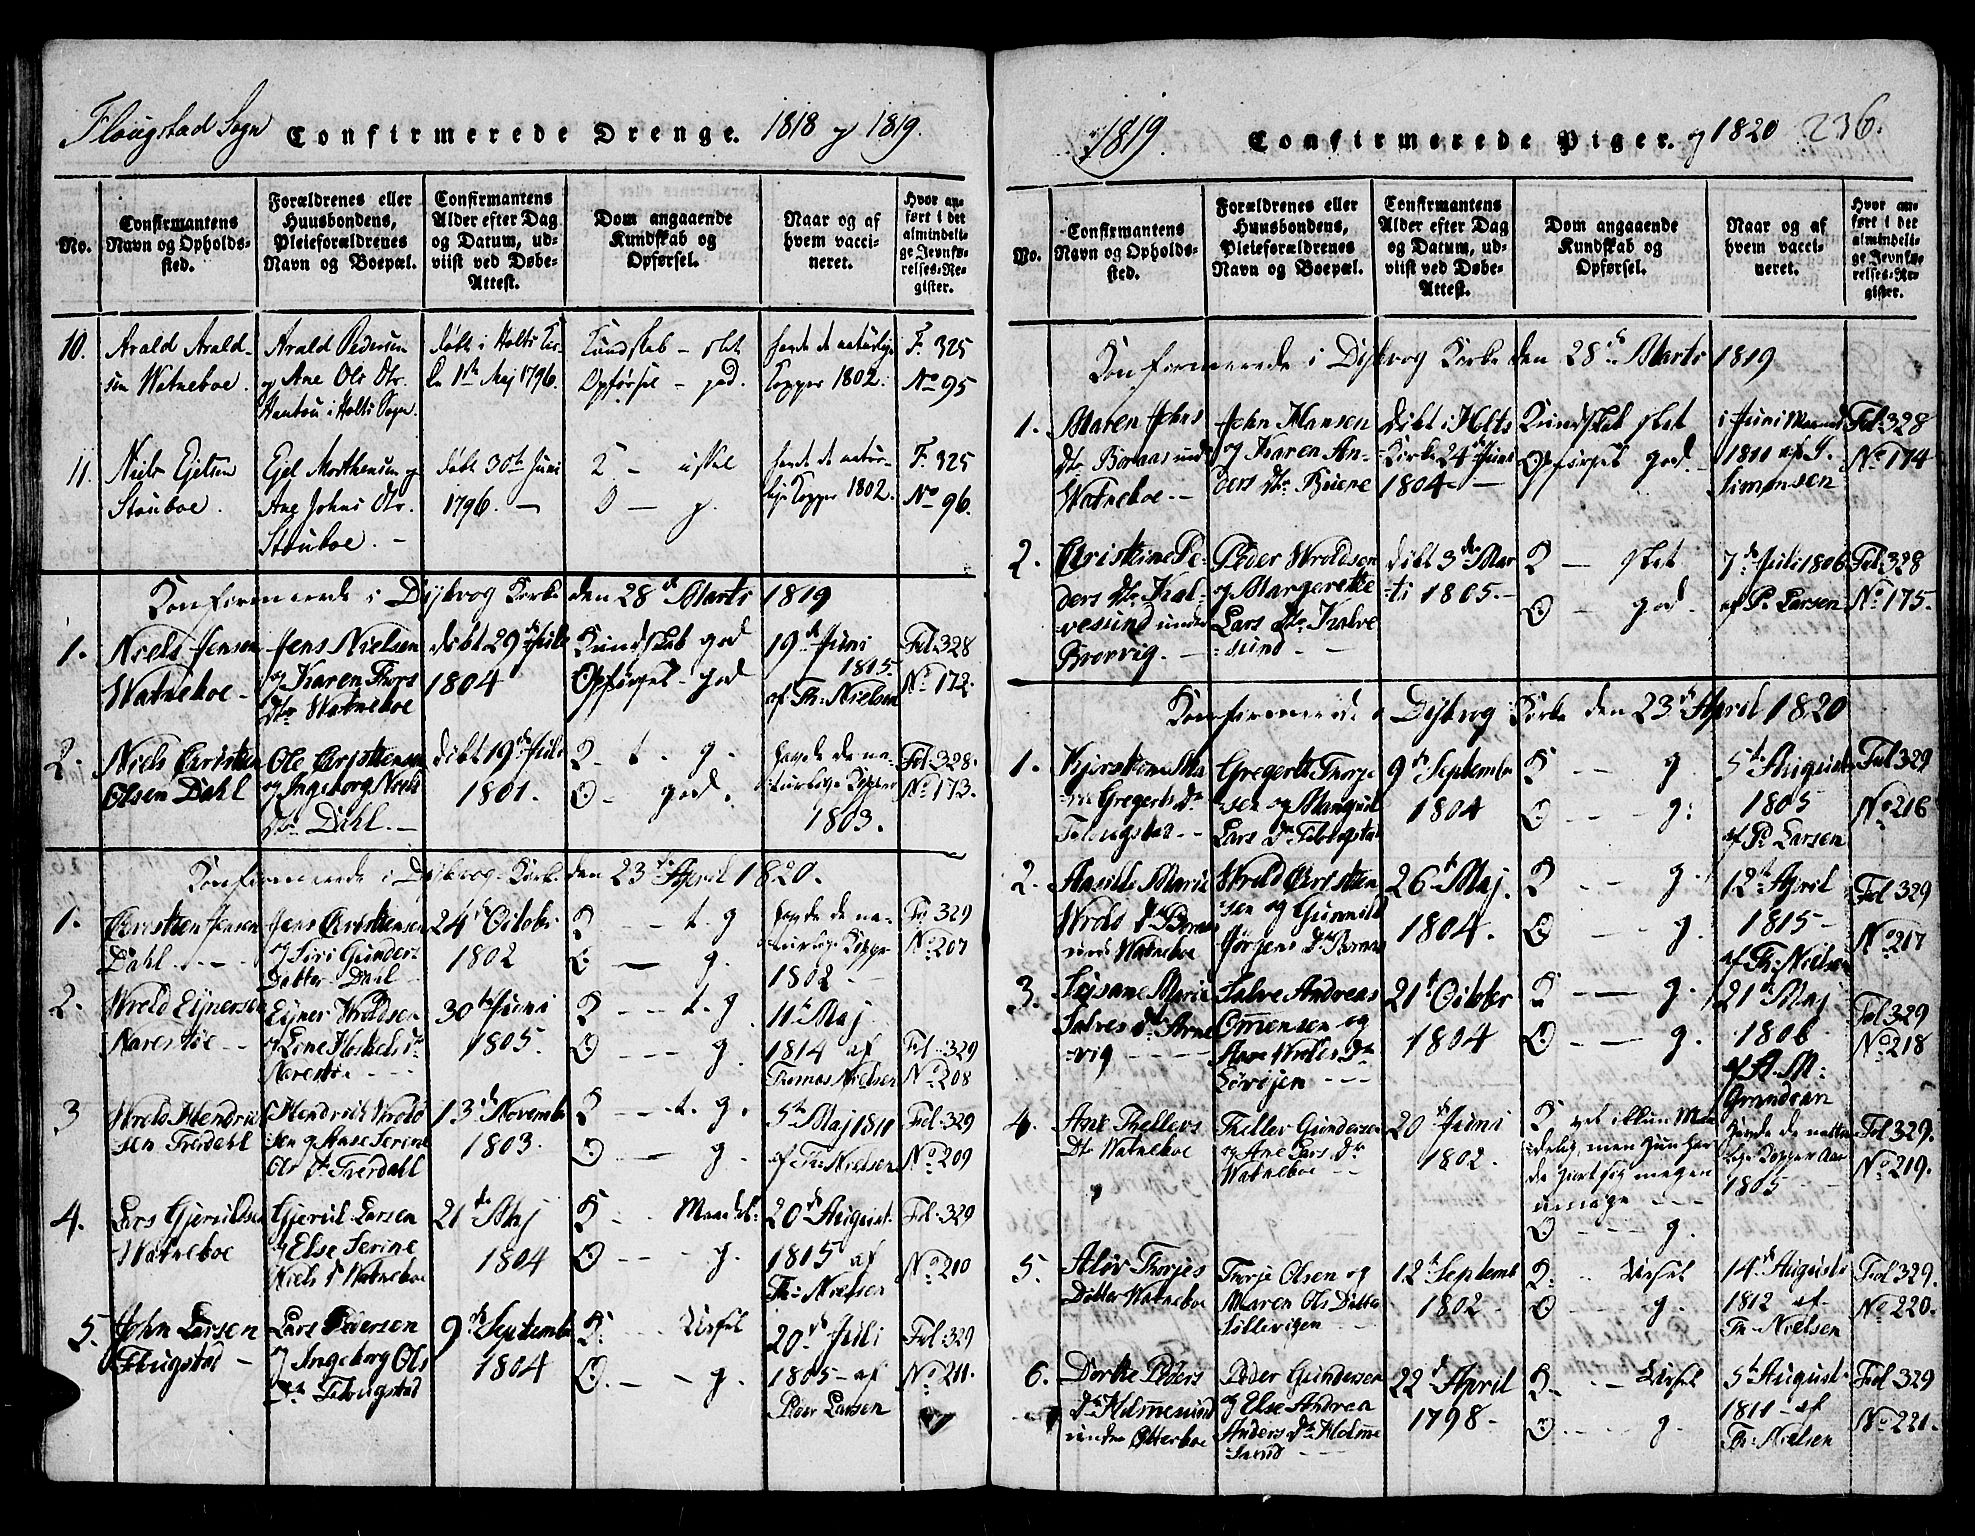 Flougstad Sogn Confirmerede Drenge. 1818 og 1819.
No.
Confirmantens
Navn og Opholds-
sted.
Forældrenes eller
Huusbondens,
Pleieforældrenes
Navn og Boepæl.
Confirmantens
Alder efter Dag
og Datum, ud-
viist ved Døbe-
Attest.
Dom angaaende
Kundskab og
Opførsel.
Naar og af
hvem vacci-
neret.
Hvor an-
ført i det
almindeli-
ge Jevnfø-
relses-Re-
gister.
10.
Arald Arald-
sen Watneboe.
Arald Pedersen
og Ane Ols Dtr.
i Holts Sogn.
døbt i Holts Kir-
ke 1ste Maj 1796.
Kundskab - slet
Opførsel - god.
havde de naturlige
Kopper 1802.
F. 325
No 95
11.
Niels Ejelsen
Stouboe.
Ejel Morthensen og
Ane Johns Dtr.
Stouboe. -
døbt 30te Juni
1796. -
K - ussel
O - g.
havde de natur-
lige Kopper 1802.
F. 325
No 96.
Konfirmerede i Dybvog Kirke den 28de Marts 1819
1.
Niels Jensen
Watneboe -
Jens Nielsen
og Karen Thors
Dtr Watneboe
døbt 29de Juli
1804
Kundskab god
Opførsel - god
19de Juni
1815.
af Th: Nielsen
Fol 328
No 172.
2.
Niels Christen
Olsen Dahl
Ole Christensen
og Ingeborg Niels
Dtr. Dahl. -
døbt 19de Juli
1801.
K - t. g.
O - god.
havde de na-
turlige Kopper
1803.
Fol 328.
No 173.
Konfirmerede i Dybvog Kirke den 23de April 1820.
1.
Christen Jensen
Dahl
Jens Christensen
og Siri Gunders
Datter Dahl
24de Octobr
1802
K - t. g
O - g.
havde de na-
turlige Kopper
1802
Fo 329
No 207
2.
Wrold Ejnersen
Narestøe
Ejner Wroldsen
og Lene Dr
Narestøe
30te Juni
1805.
K - - t. g
O - - g.
11te Maj
1814 af
Thomas Nielsen
Fol 329
No 208
3
Wrold Hendrich
sen Tverdahl
Hendrich Wrold
sen og Aase Serine
Ols Dr Tverdahl
13de Novembr
1803.
K - - t. g.
O - - g.
5te Maj 1811
af Th: Nielsen
Fol 329
No 209
4.
Lars Gjeruldsen
Watneboe
Gjerul Larsen
og Else Serine
Niels Dr Watneboe
21de Maj
1804
K - - Maadel:
O - - g.
20de August
1815 af
Th: Nielsen
Fol 329
No 210
5.
John Larsen
Flougstad -
Lars Pedersen
og Ingeborg Ols
Dtr Flougstad
9de Septembr
1804
K - - Ussel
O. - - g.
20de Juli
1805 - af
Peder Larsen
Fol 329
No 211.
1819. Confirmerede Piger. og 1820 236.
No.
Confirmantens
Navn og Opholds-
sted.
Forældrenes eller
Huusbondens,
Pleieforældrenes
Navn og Boepæl.
Confirmantens
Alder efter Dag
og Datum, ud-
viist ved Døbe-
Attest.
Dom angaaende
Kundskab og
Opførsel.
Naar og af
hvem vacci-
neret.
Hvor an-
ført i det
almindeli-
ge Jevnfø-
relses-Re-
gister.
Konfirmerede i Dybvog Kirke den 28de Marts 1819
1.
Maren Johns
Dtr Boraas under
Watneboe. -
John Hansen
og Karen An-
ders Dtr
døbt i Holts
Kirke 24de Juni
1804 -
Kundskab slet
Opførsel god. -
i Juni Maaned
1811 af J.
Simonsen
Fol 328
No 174
2.
Christine Pe-
ders Dtr Kal-
vesund under
Brovvig. -
Peder Wroldsen
og Margerethe
Lars Dtr Kalve
sund - -
døbt 3de Mar
ti 1805. -
K - slet
O - god.
7de Juli 1806
af P. Larsen
Fol 328
No 175.
Konfirmerede i Dybvog Kirke den 23de April 1820
1.
Kjerstine Ma
rie Gregerts Dr
Flougstad -
Gregert Thorje
sen og
Lars Dr Flougstad
9de Septembr
1804
K - - g.
O - - g.
5te August
1805
af P. Larsen
Fol 329
No 216
2.
Aasille Marie
Wrolds Dr Boraas
under Watneboe
Wrold Christen
sen og Gunnild
Jørgens Dr Boraas
26de Maj
1804.
K - - g.
O - - g.
12te April
1815 -
af Th: Nielsen
Fol 329
No 217
3.
Susane Marie
Salves Dtr Arne
vig
Salve Andreas
Omonsen og
Aase Wrolds Dtr
21de Octobr
1804
K - - g.
O - - g.
21de Maj
1806
af A. M:
Grundean
Fol 329
No 218
4.
Ane Thellevs
Dtr Watneboe
Thellev Gundersen
og Ane Lars Dr
Watneboe
20de Juni
1802.
K vel ikkun Maa
delig, men hun har
gjort sig megen
umage - - -
O - - g.
havde de natur
lige Kopper Aar
1805
Fol 329.
No 219.
5.
Aløv Thorjes
Datter Watneboe
Thorje Olsen og
Maren Ols Datter
12te Septembr
1802 -
K - - Ussel
O - - g.
14de August
1812 af
Th: Nielsen
Fol 329.
No 220.
6.
Dorthe Peders
Dr Holmesund
under Otterboe
Peder Gundersen
og Else Andrea
Anders Dr Holme
sund -
22de April
1798 -
K - - Ussel
O - - g.
5te August
1811 - af
Th: Nielsen
Fol 329
No 221.